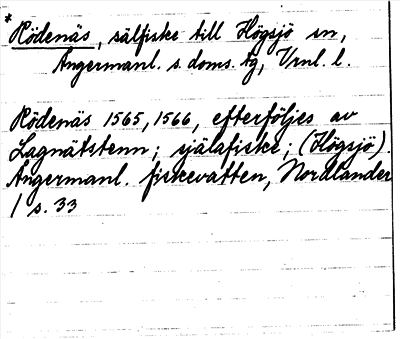 * Rödenäs, sälfiske till Högsjö sn,
Ångermanl. s. doms. tg, Vrnl. l.
Rödenäs 1565, 1566, efterföljes av
Lagnätstenn; själafiske; (Högsjö).
Ångermanl. fiskevatten, Nordlander
/ s. 33